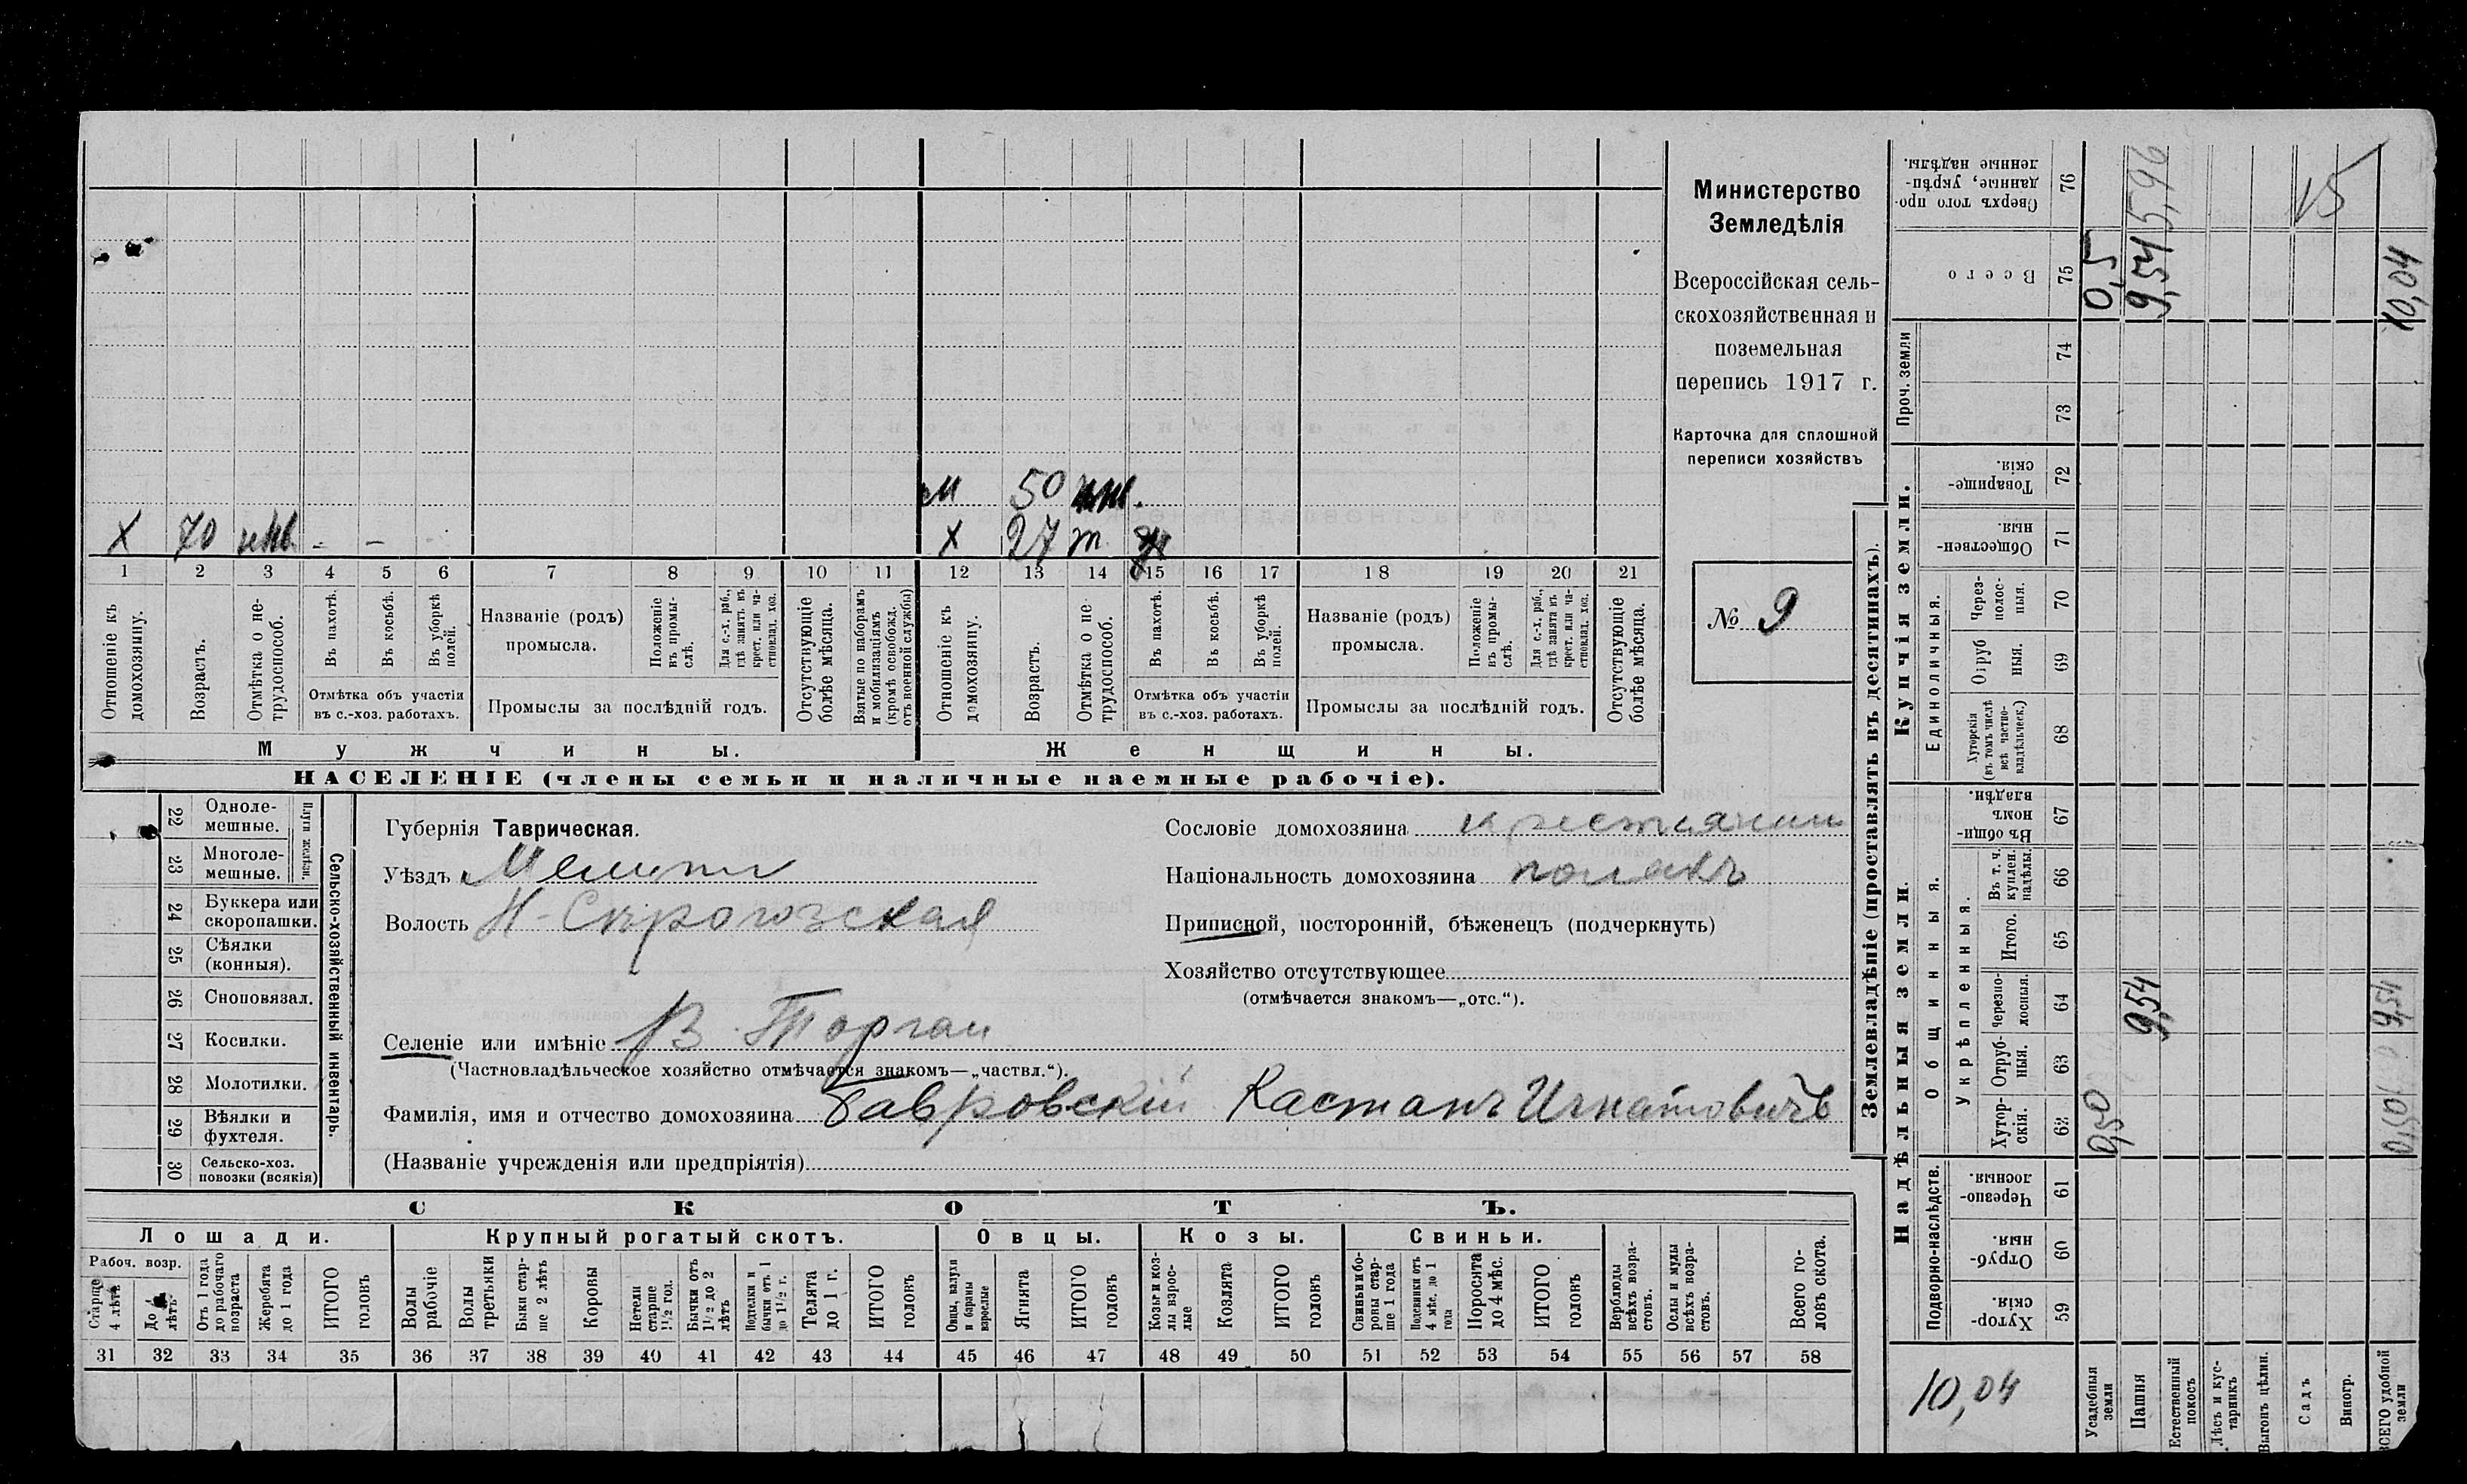 Министерство
Земледѣлія
Всероссійская сель-
скохозяйственная и
поземельная
перепись 1917 г.
Карточка для сплошной
переписи хозяйствъ
№ 9
м 50 инв.
х 70 инв. - -
х 27 т
1 2 3 4 5 6 7 8 9 10 11 12 13 14 15 16 17 18 19 20 21
Отношеніе къ домохозяину.
Возрастъ.
Отмѣтка о не-трудоспособ.
Въ пахотѣ.
Въ косьбѣ.
Въ уборкѣ полей.
Отмѣтка объ участіи
въ с.-хоз. работахъ.
Названіе (родъ)
промысла.
Положеніе въ промы-слѣ.
Для с.-х. раб., гдѣ занятъ въ крест. или ча-стновлад. хоз.
Промыслы за послѣдній годъ.
Отсутствующіе болѣе мѣсяца.
Взятые по наборамъ и мобилизаціямъ (кромѣ освобожд. отъ военной службы)
Отношеніе къ домохозяину.
Возрастъ.
Отмѣтка о не-трудоспособ.
Въ пахотѣ.
Въ косьбѣ.
Въ уборкѣ полей.
Отмѣтка объ участіи
въ с.-хоз. работахъ.
Названіе (родъ)
промысла.
Положеніе въ промы-слѣ.
Для с.-х. раб., гдѣ занята въ крест. или ча-стновлад. хоз.
Промыслы за послѣдній годъ.
Отсутствующіе болѣе мѣсяца.
Мужчины.
Женщины.
НАСЕЛЕНІЕ (члены семьи и наличные наемные рабочіе).
22 Одноле-мешные.
23 Многоле-мешные.
Плуги желѣзн.
24 Буккера или скоропашки.
25 Сѣялки (конныя).
26 Сноповязал.
27 Косилки.
28 Молотилки.
29 Вѣялки и фухтеля.
30 Сельско-хоз. повозки (всякія)
Сельско-хозяйственный инвентарь.
Губернія Таврическая.
Уѣздъ Мелит
Волость Н-Сѣрогозская
Селеніе или имѣніе В Торгаи
(Частновладѣльческое хозяйство отмѣчается знакомъ—„частвл.“).
Фамилія, имя и отчество домохозяина Гавровскій Кастанъ Игнатовичъ
(Названіе учрежденія или предпріятія)
Сословіе домохозяина крестьянин
Національность домохозяина полякъ
Приписной, посторонній, бѣженецъ (подчеркнуть)
Хозяйство отсутствующее
(отмѣчается знакомъ—„отс.“).
СКОТЪ.
Лошади.
Крупный рогатый скотъ.
Овцы.
Козы.
Свиньи.
Рабоч. возр.
Старше 4 лѣтъ
До 4 лѣтъ
Отъ 1 года до рабочаго возраста
Жеребята до 1 года
ИТОГО головъ
Волы рабочіе
Волы третьяки
Быки стар-ше 2 лѣтъ
Коровы
Нетели старше 1½ год.
Бычки отъ 1½ до 2 лѣтъ
Подтелки и бычки отъ 1 до 1½ г.
Телята до 1 г.
ИТОГО головъ
Овцы, валухи и бараны взрослые
Ягнята
ИТОГО головъ
Козы и коз-лы взрос-лые
Козлята
ИТОГО головъ
Свиньи и бо-ровы стар-ше 1 года
Подсвинки отъ 4 мѣс. до 1 года
Поросята до 4 мѣс.
ИТОГО головъ
Верблюды всѣхъ возра-стовъ.
Ослы и мулы всѣхъ возра-стовъ.
Всего го-ловъ скота.
31 32 33 34 35 36 37 38 39 40 41 42 43 44 45 46 47 48 49 50 51 52 53 54 55 56 57 58
Землевладѣніе (проставлять въ десятинахъ).
Надѣльныя земли.
Купчія земли.
Проч. земли
Подворно-наслѣдств.
Общинныя.
Укрѣпленныя.
Единоличныя.
76 Сверхъ того про-данные, укрѣп-ленные надѣлы.
75 Всего 0,5 9,54 10,04
5,96
15
74
73
72 Товарище-скія.
71 Обществен-ныя.
70 Через-полос-ныя.
69 Отруб ныя.
68 Хуторскія (въ томъ числѣ всѣ частно-владѣльческ.)
67 Въ общи-номъ владѣн.
66 Въ т. ч. куплен. надѣлы.
65 Итого.
64 Черезпо-лосныя. 9,54 9,54
63 Отруб-ныя.
62 Хутор-скія. 0,50 0,50
61 Черезпо-лосныя.
60 Отруб-ныя.
59 Хутор-скія.
10,04
Усадебныя земли
Пашня
Естественный покосъ
Лѣсъ и кус-тарникъ
Выгонъ цѣлин.
Садъ
Виногр.
ВСЕГО удобной земли